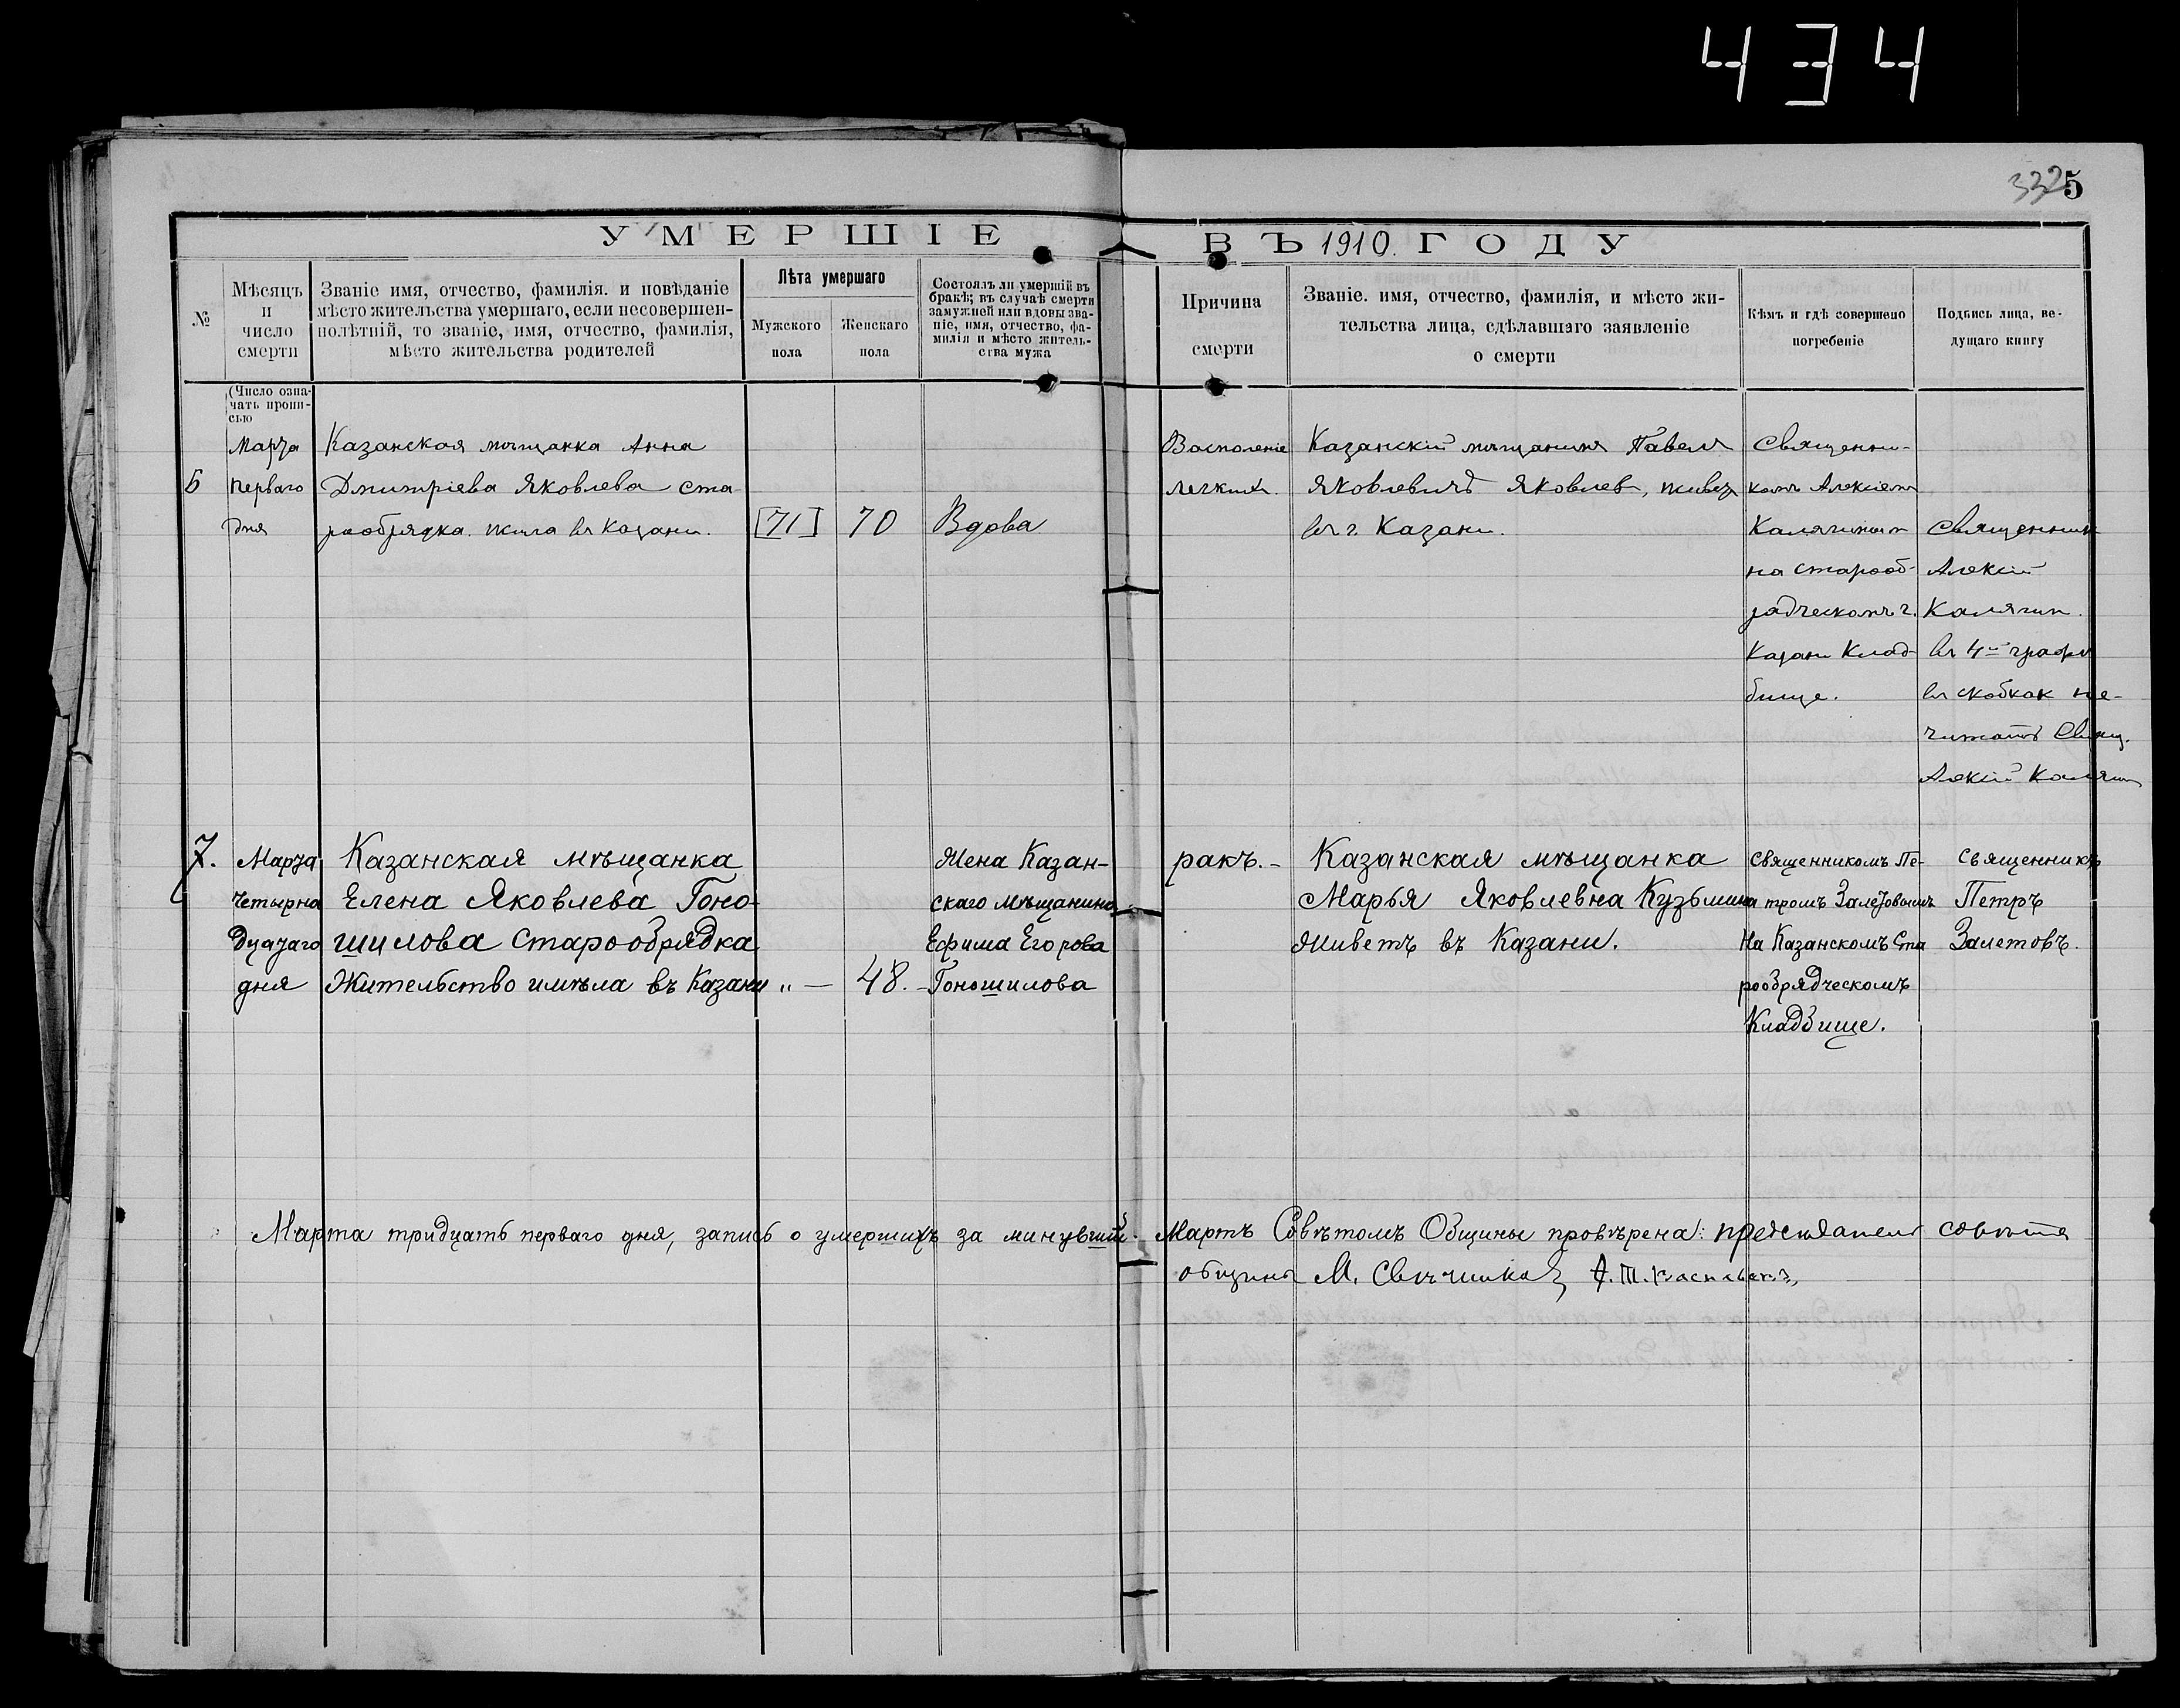 434
3325
УМЕРШІЕ ВЪ 1910. ГОДУ
№
Мѣсяцъ
и
число
смерти
Званіе имя, отчество, фамилія. и повѣданіе
мѣсто жительства умершаго, если несовершен-
нолѣтній, то званіе, имя, отчество, фамилія,
мѣсто жительства родителей
Лѣта умершаго
Мужского
пола
Женскаго
пола
Состоялъ ли умершій въ
бракѣ; въ случаѣ смерти
замужней или вдовы зва-
ніе, имя, отчество, фа-
милія и мѣсто житель-
ства мужа
Причина
смерти
Званіе. имя, отчество, фамилія, и мѣсто жи-
тельства лица, сдѣлавшаго заявленіе
о смерти
Кѣмъ и гдѣ совершено
погребеніе
Подпись лица, ве-
дущаго книгу
(Число озна-
чать пропи-
сью
6
Марта
перваго
дня
Казанская мѣщанка Анна
Дмитріева Яковлева ста
рообрядка. жила въ Казани.
[71]
70
Вдова
Васполеніе
легкихъ.
Казанскій мѣщанинъ Павелъ
Яковлевичъ Яковлев, живетъ
въ г. Казани.
Священни-
комъ Алексіемъ
Калягинымъ
на старооб-
радческомъ г.
Казани Клад-
бище.
Священникъ
Алексій
Калягин.
въ 4й графѣ
въ скобках не-
читать Свящ.
Алексій Калягин
7.
Марта
четырна
дцатаго
дня
Казанская мѣщанка
Елена Яковлева Гоно-
шилова Старообрядка
Жительство имѣла въ Казани
" —
48.
Жена Казан-
скаго Мѣщанина
Ефима Егорова
Гоношилова
ракъ. -
Казанская мѣщанка
Марья Яковлевна Кузьмина
живетъ въ Казани.
Священникомъ Пе-
тромъ Залетовымъ
На Казанскомъ Ста
рообрядческомъ
Кладбище.
Священникъ
Петръ
Залетовъ.
Марта тридцать перваго дня, запись о умершихъ за минувшій Мартъ Совѣтомъ Общины провѣрена: предсѣдатель совѣта
общины М. Свѣчников А. Т. Васильевъ,